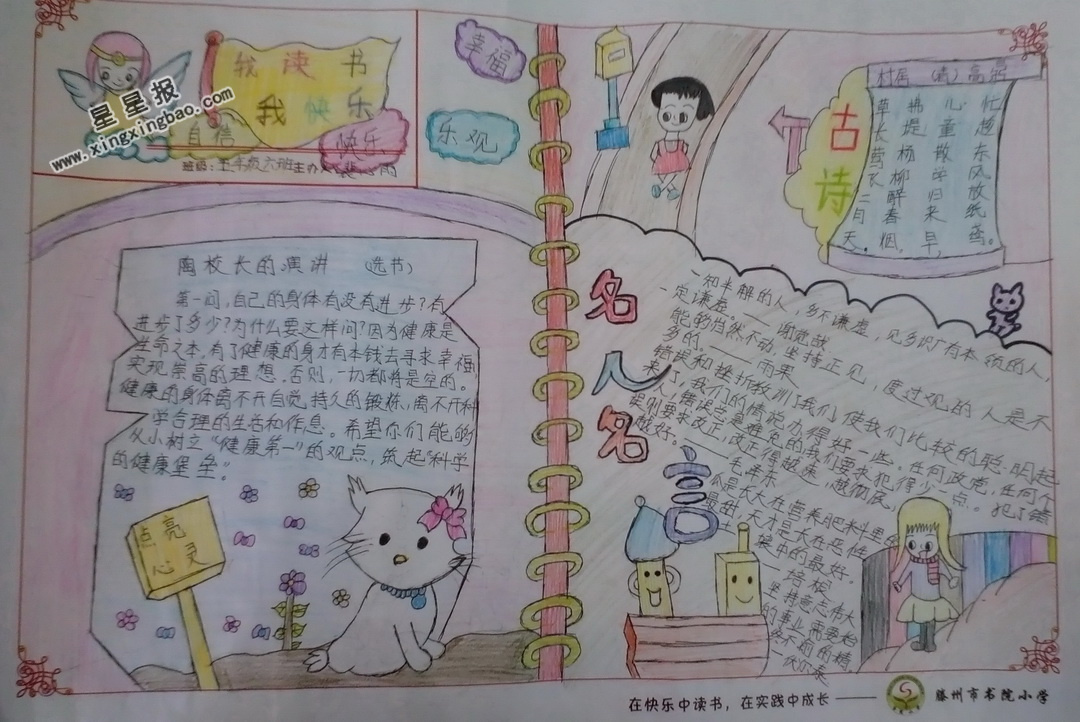 我读书
我快乐
自信
快乐
星星报
www.xingxingbao.com
班级：五年级六班主办人：
幸福
乐观
陶校长的演讲 （选书）
第一问，自己的身体有没有进步？有
进步了多少？为什么要这样问？因为健康是
生命之本，有了健康的身才有本钱去寻求幸福，
实现崇高的理想。否则，一切都将是空的。
健康的身体离不开自觉、持久的锻炼，离不开科
学合理的生活和作息。希望你们能的够
从小树立“健康第一”的观点，筑起“科学
的健康堡垒。”
点亮
心灵
古诗
村居 （清）高鼎
草长莺飞二月天，
拂堤杨柳醉春烟，
儿童散学归来早，
忙趁东风放纸鸢。
名人名言
一知半解的人，多不谦虚，见多识广有本领的人，
一定谦虚。——谢觉哉
能的当然不动，坚持正见，度过观的人是不
多的。——雨果
错误和挫折教训了我们，使我们比较的聪明起
来了，我们的情说办得好一些。任何政党，任何个
人，错误总是难免的，我们要求犯得少一点。犯了错
误则要求改正，改正得越速，越彻底，
越好。——毛泽东
最甜，天才是长在恶性
的最好。
——培根
坚持意志伟大
的事业需要始
终不前的精
——伏尔泰
在快乐中读书，在实践中成长——
滕州市书院小学